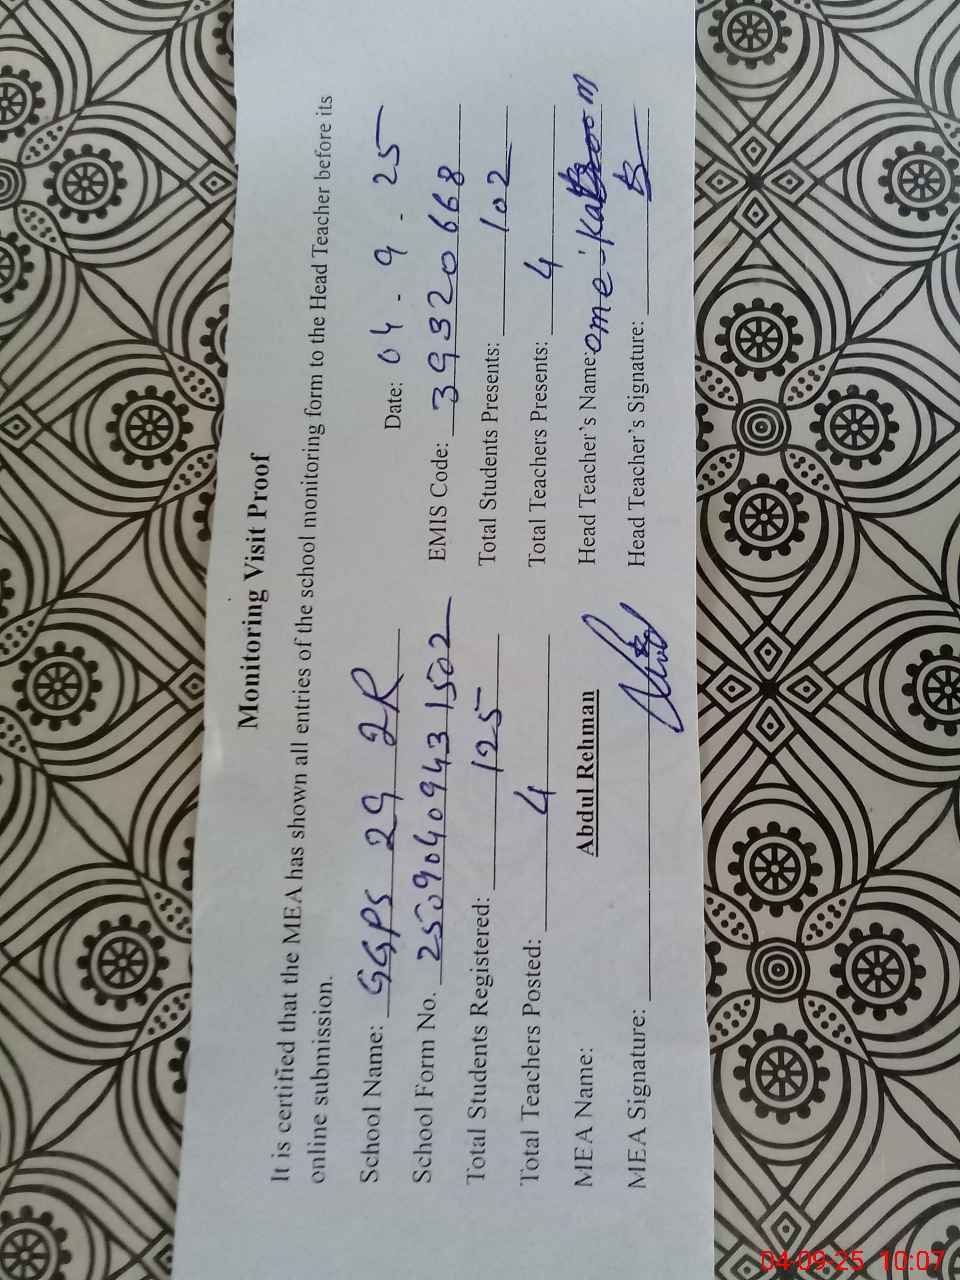 Monitoring Visit Proof
It is certified that the MEA has shown all entries of the school monitoring form to the Head Teacher before its
online submission.
Date: 04-9-25
School Name: GGPS 29 2R
EMIS Code: 39320668
School Form No. 250904094431502
Total Students Presents: 102
Total Students Registered: 125
Total Teachers Presents: 4
Total Teachers Posted: 4
Head Teacher's Name: ome-Kalsoom
MEA Name: Abdul Rehman
Head Teacher's Signature:
MEA Signature:
04-09-25 10:07